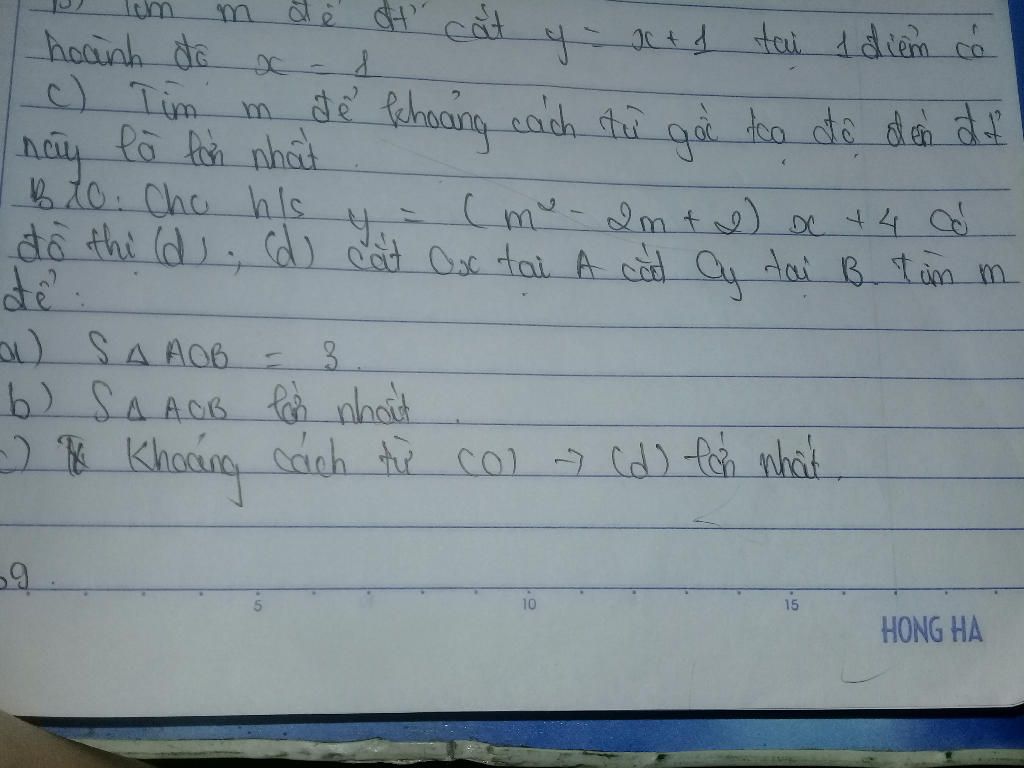 b) Tìm m để đt cắt y = x + 1 tại 1 điểm có
hoành độ x = 1
c) Tìm m để khoảng cách từ gốc toạ độ đến đt
này là lớn nhất.
B10. Cho h/s y = (m² - 2m + 2) x + 4 có
đồ thị (d); (d) cắt Ox tại A cắt Oy tại B. Tìm m
để:
a) S∆AOB = 3.
b) S∆AOB lớn nhất.
c) Khoảng cách từ (O) → (d) lớn nhất.
9.
5 10 15
HONG HA